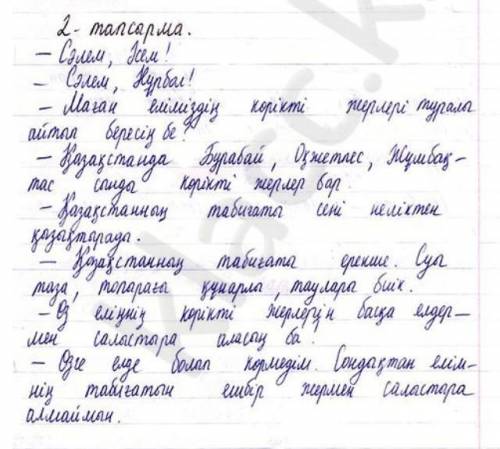 2- тапсырма.
– Сәлем, Әсем!
– Сәлем, Нұрбол!
– Маған еліміздің көрікті жерлері туралы
айтып бересің бе?
– Қазақстанда Бурабай, Оқжетпес, Жұмбақ-
тас сынды көрікті жерлер бар.
– Қазақстанның табиғаты сені неліктен
қызықтырады.
– Қазақстанның табиғаты ерекше. Суы
таза, топырағы құнарлы, таулары биік.
– Өз еліңнің көрікті жерлерін басқа елдер–
мен салыстыра аласың ба?
– Өзге елде болып көрмедім. Сондықтан елім-
нің табиғатын ешбір жермен салыстыра
алмаймын.
klacc.k